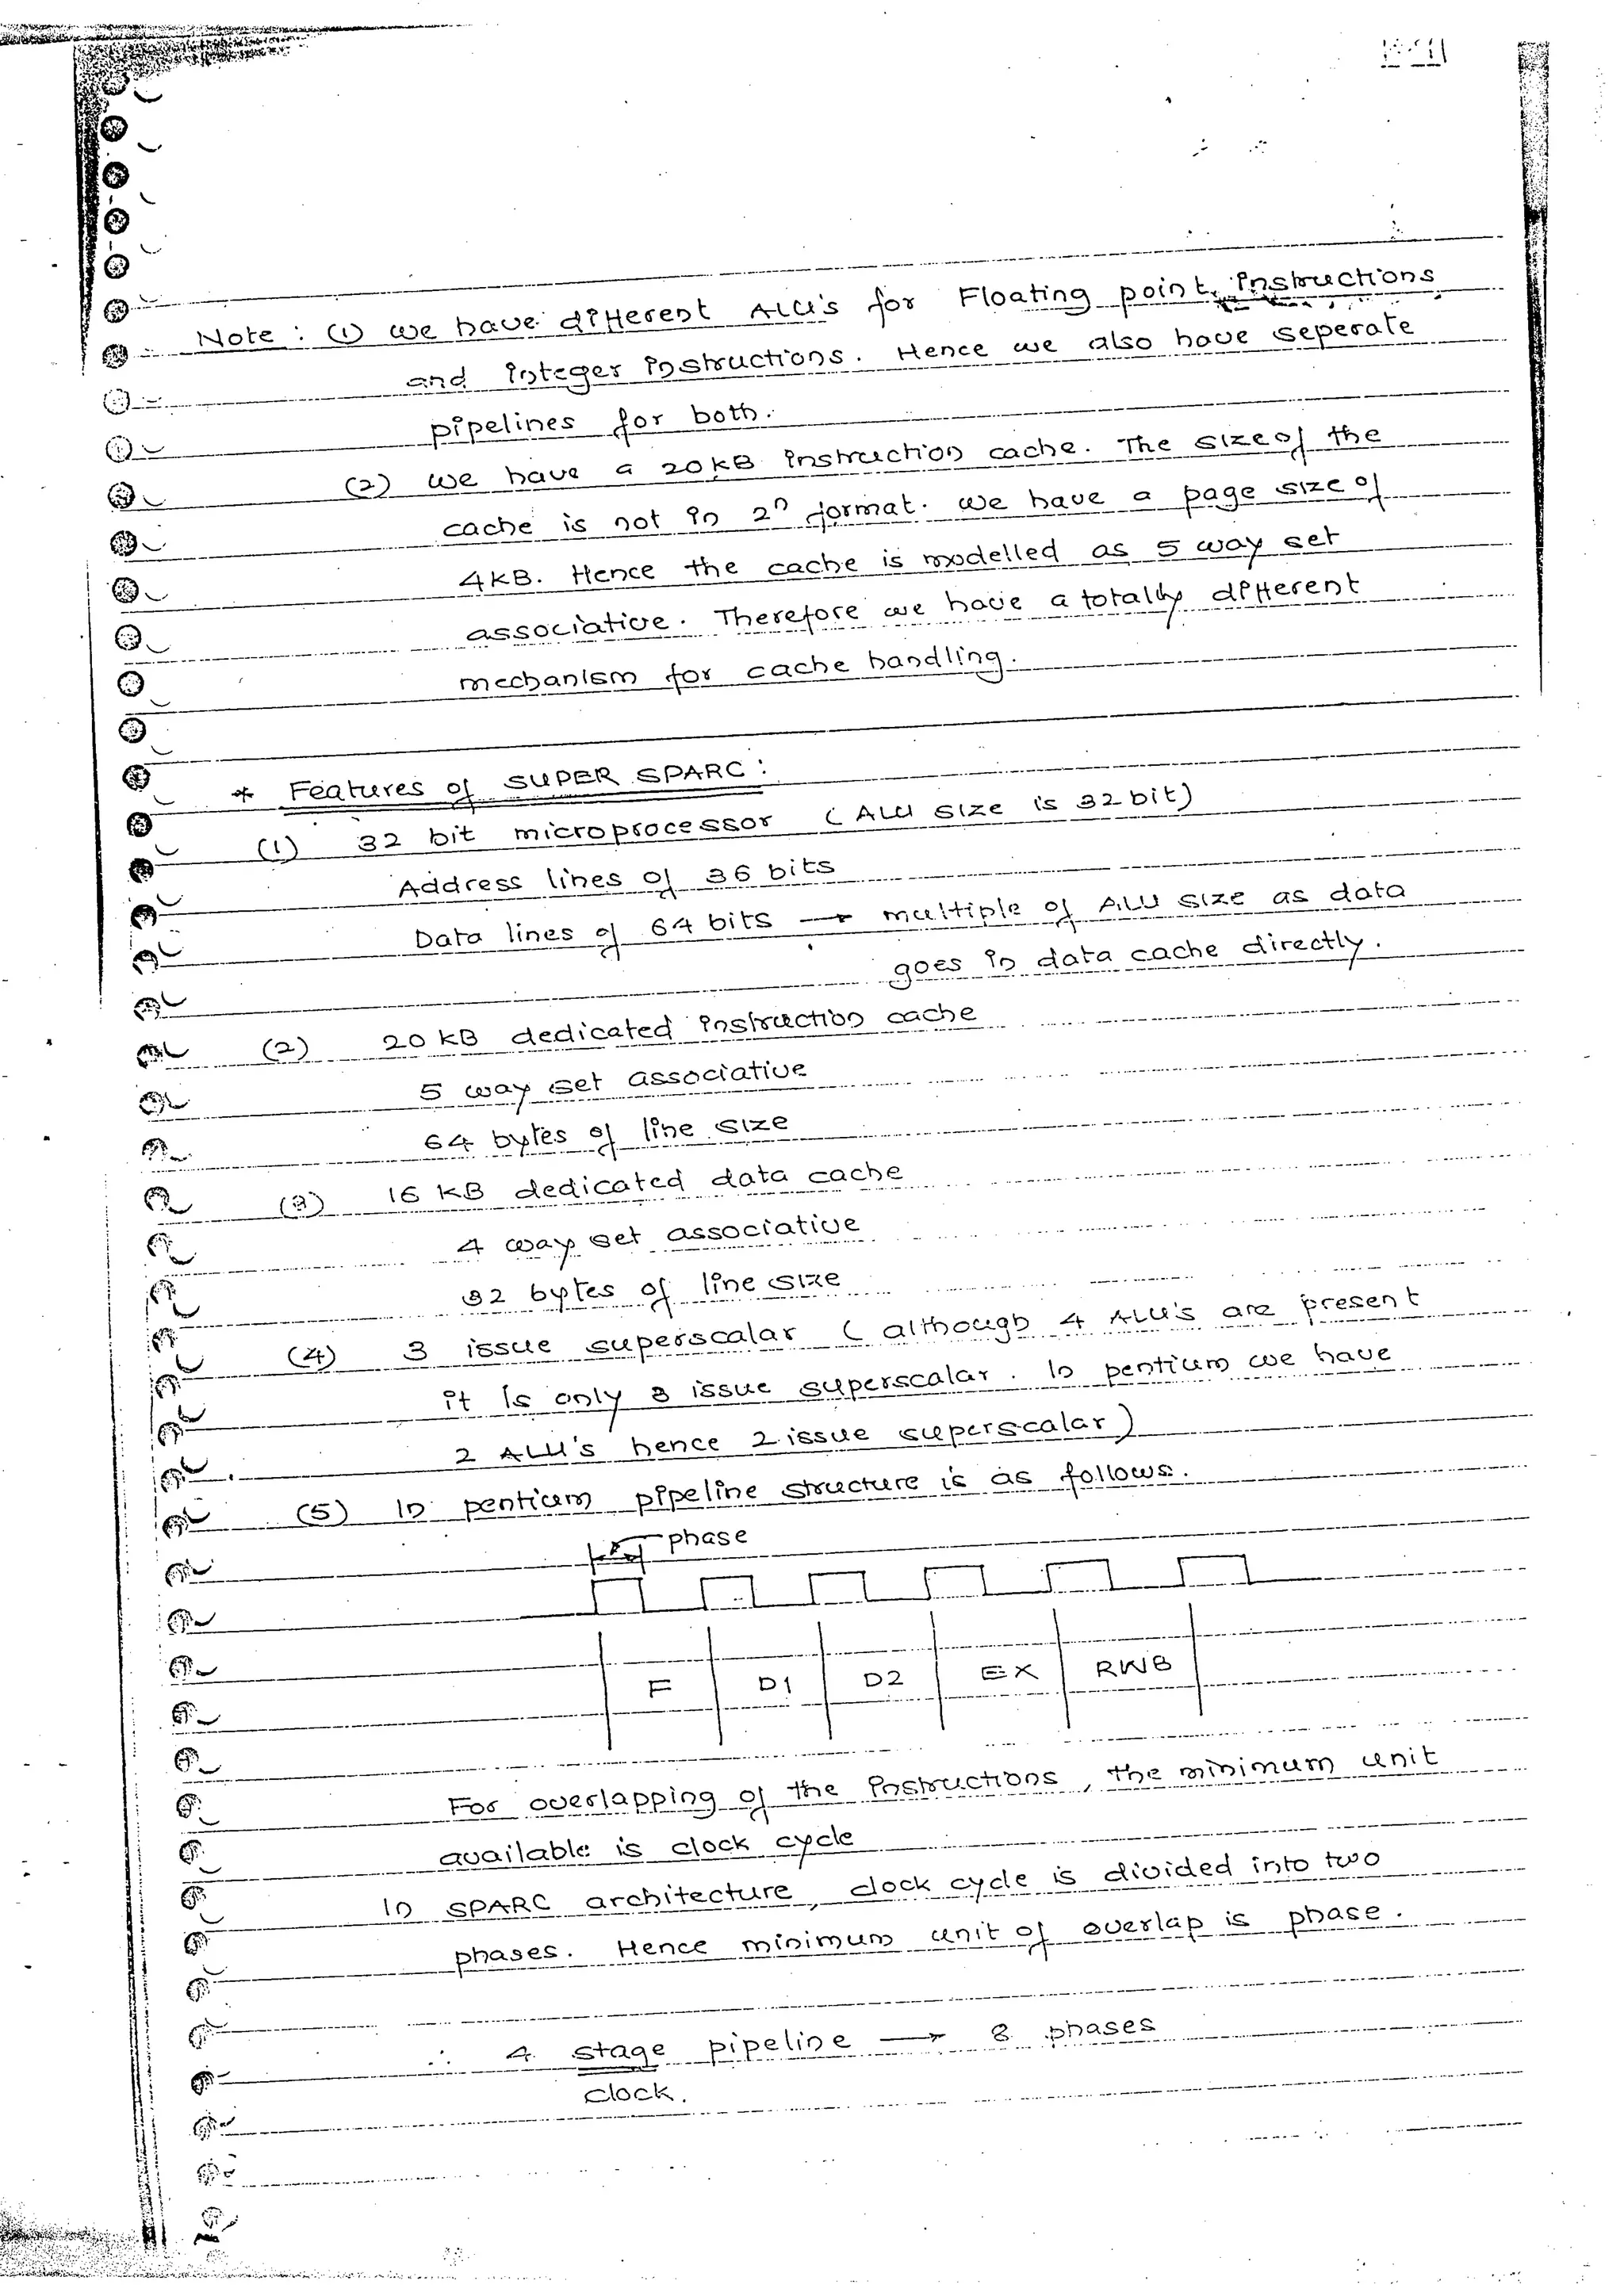 Note : (1) we have different ALU's for Floating point Instructions
and integer instructions. Hence we also have seperate
pipelines for both.
(2) we have a 20KB instruction cache. The size of the
cache is not in 2ⁿ format. we have a page size of
4KB. Hence the cache is modelled as 5 way set
associative. Therefore we have a totally different
mechanism for cache handling.
* Features of SUPER SPARC :
(1) 32 bit microprocessor ( ALU size is 32 bit)
Address lines of 36 bits
Data lines of 64 bits → multiple of ALU size as data
goes in data cache directly.
(2) 20 KB dedicated instruction cache
5 way set associative
64 bytes of line size
(3) 16 KB dedicated data cache
4 way set associative
32 bytes of line size
(4) 3 issue superscalar ( although 4 ALU's are present
it is only 3 issue superscalar. In pentium we have
2 ALU's hence 2 issue superscalar)
(5) In pentium pipeline structure is as follows.
phase
F D1 D2 EX RWB
For overlapping of the instructions, the minimum unit
available is clock cycle
In SPARC architecture, clock cycle is divided into two
phases. Hence minimum unit of overlap is phase.
∴ 4 stage pipeline → 8 phases
clock.